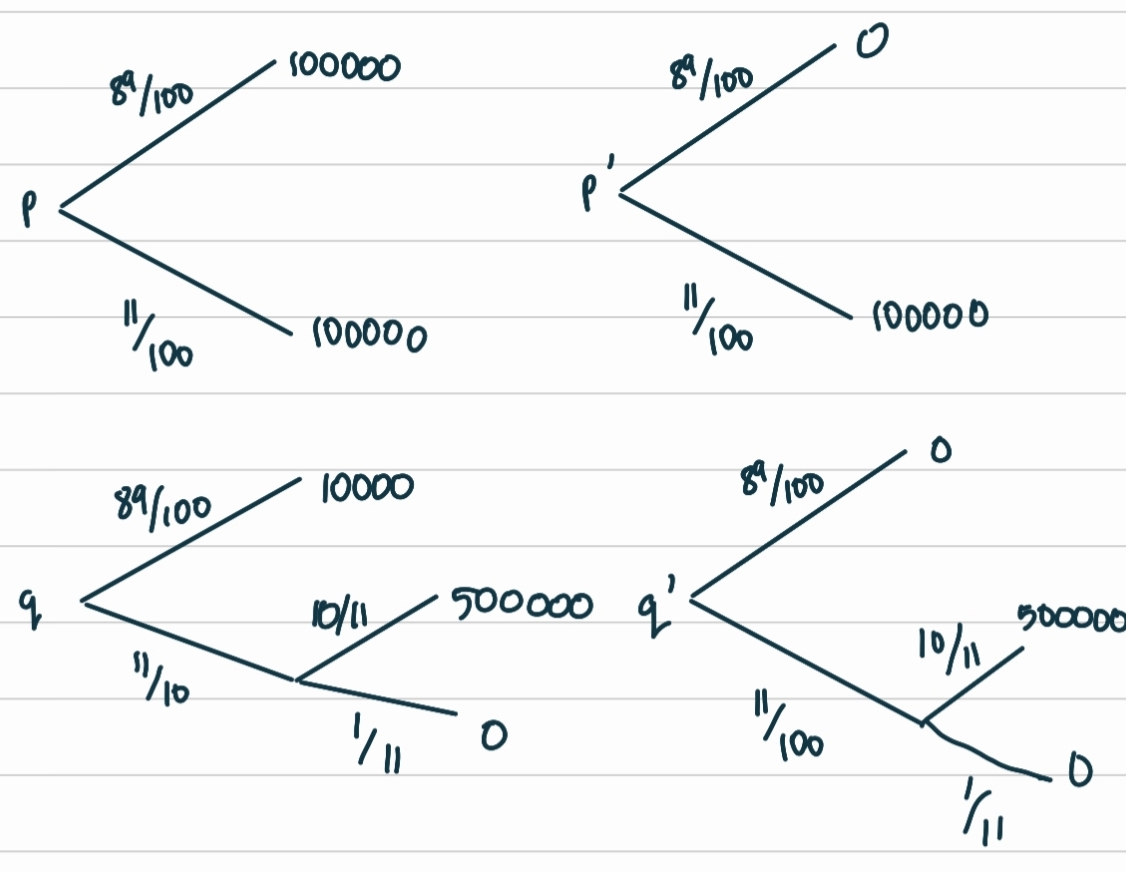 89/100 100000
p
11/100 100000
89/100 0
p'
11/100 100000
89/100 10000
q
10/11 500000
11/10
1/11 0
89/100 0
q'
10/11 500000
11/100
1/11 0